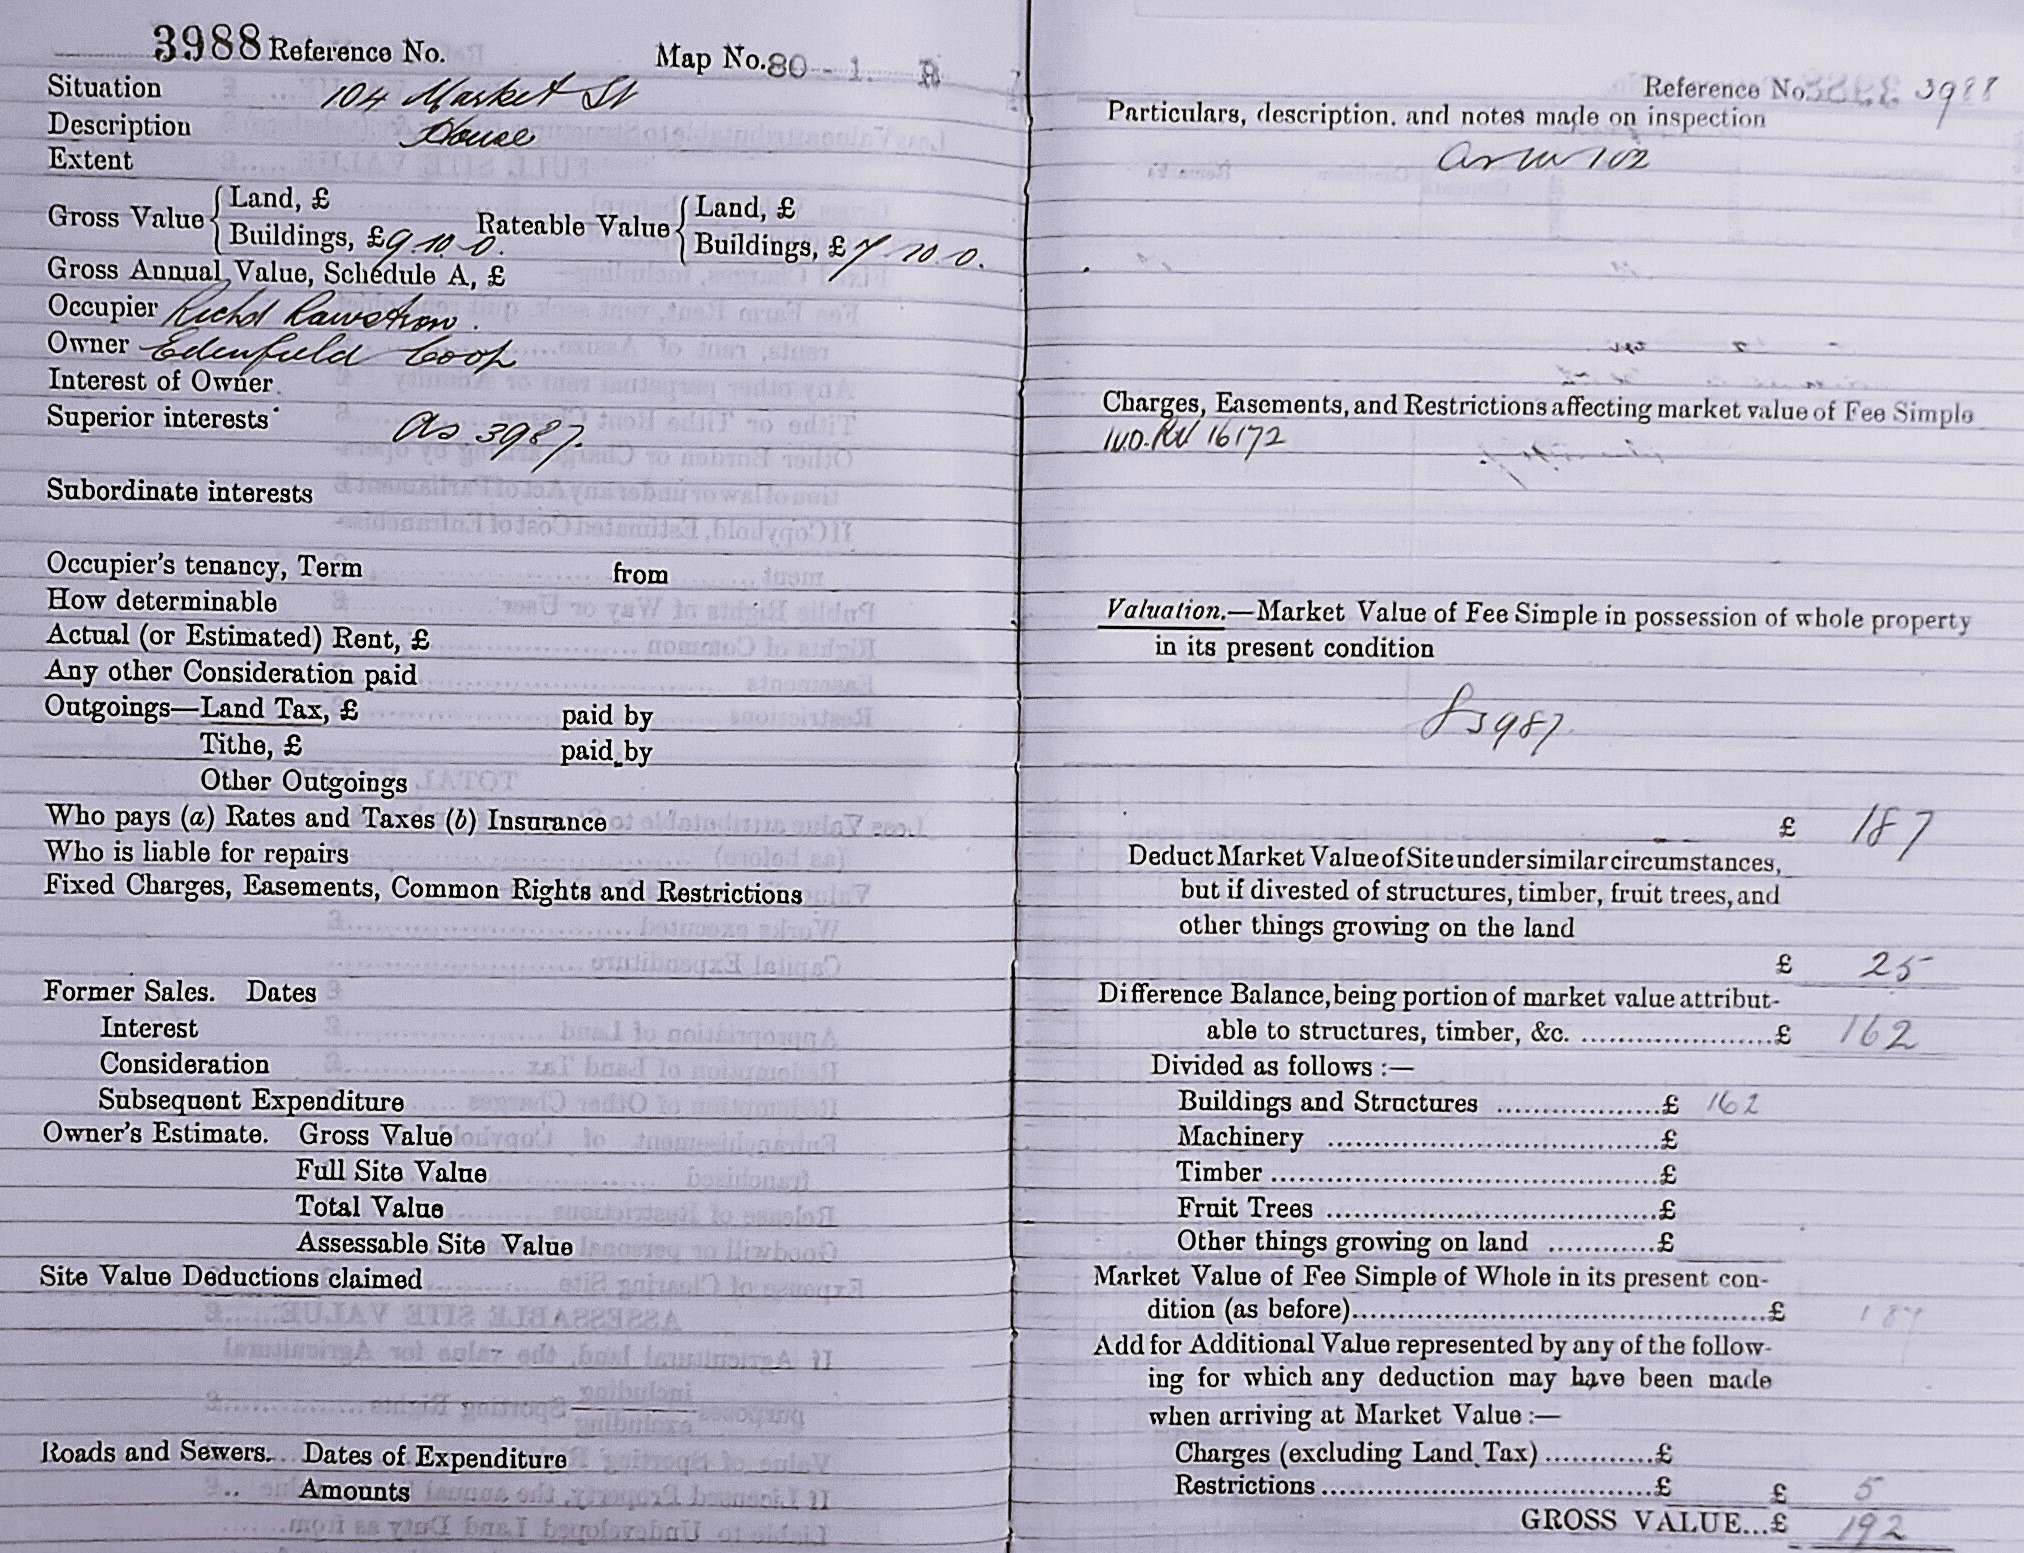 3988 Reference No. Map No. 80-1. B
Situation 104 Market St
Description House
Extent
Gross Value { Land, £
Buildings, £ 9.10.0. Rateable Value { Land, £
Buildings, £ 7.10.0.
Gross Annual Value, Schedule A, £
Occupier Richd Rawstron.
Owner Edenfield Coop
Interest of Owner
Superior interests As 3987.
Subordinate interests
Occupier's tenancy, Term from
How determinable
Actual (or Estimated) Rent, £
Any other Consideration paid
Outgoings—Land Tax, £ paid by
Tithe, £ paid by
Other Outgoings
Who pays (a) Rates and Taxes (b) Insurance
Who is liable for repairs
Fixed Charges, Easements, Common Rights and Restrictions
Former Sales. Dates
Interest
Consideration
Subsequent Expenditure
Owner's Estimate. Gross Value
Full Site Value
Total Value
Assessable Site Value
Site Value Deductions claimed
Roads and Sewers. Dates of Expenditure
" Amounts
Reference No. 3988
Particulars, description, and notes made on inspection
as 102
Charges, Easements, and Restrictions affecting market value of Fee Simple
16172
Valuation.—Market Value of Fee Simple in possession of whole property
in its present condition
3987.
£ 187
Deduct Market Value of Site under similar circumstances,
but if divested of structures, timber, fruit trees, and
other things growing on the land
£ 25
Difference Balance, being portion of market value attribut-
able to structures, timber, &c. ........ £ 162
Divided as follows :—
Buildings and Structures ........ £ 162
Machinery ........ £
Timber ........ £
Fruit Trees ........ £
Other things growing on land ........ £
Market Value of Fee Simple of Whole in its present con-
dition (as before)........ £ 187
Add for Additional Value represented by any of the follow-
ing for which any deduction may have been made
when arriving at Market Value :—
Charges (excluding Land Tax) ........ £
Restrictions ........ £ £ 5
GROSS VALUE...£ 192